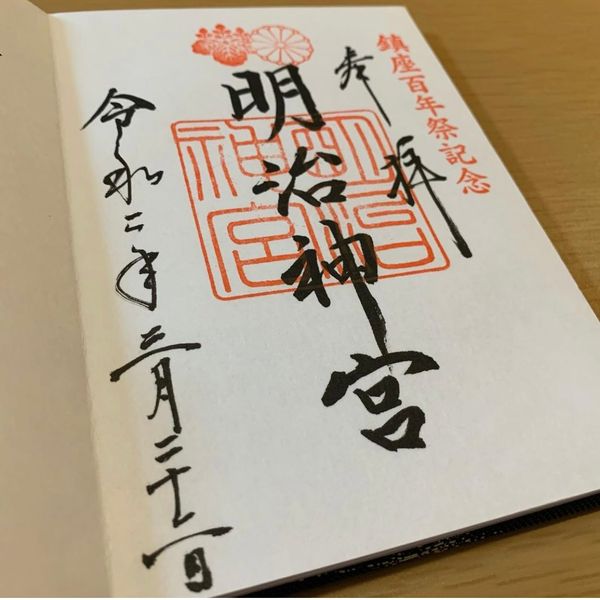 鎮座百年祭記念
奉拝
明治神宮
明治
神宮
令和二年三月二十一日